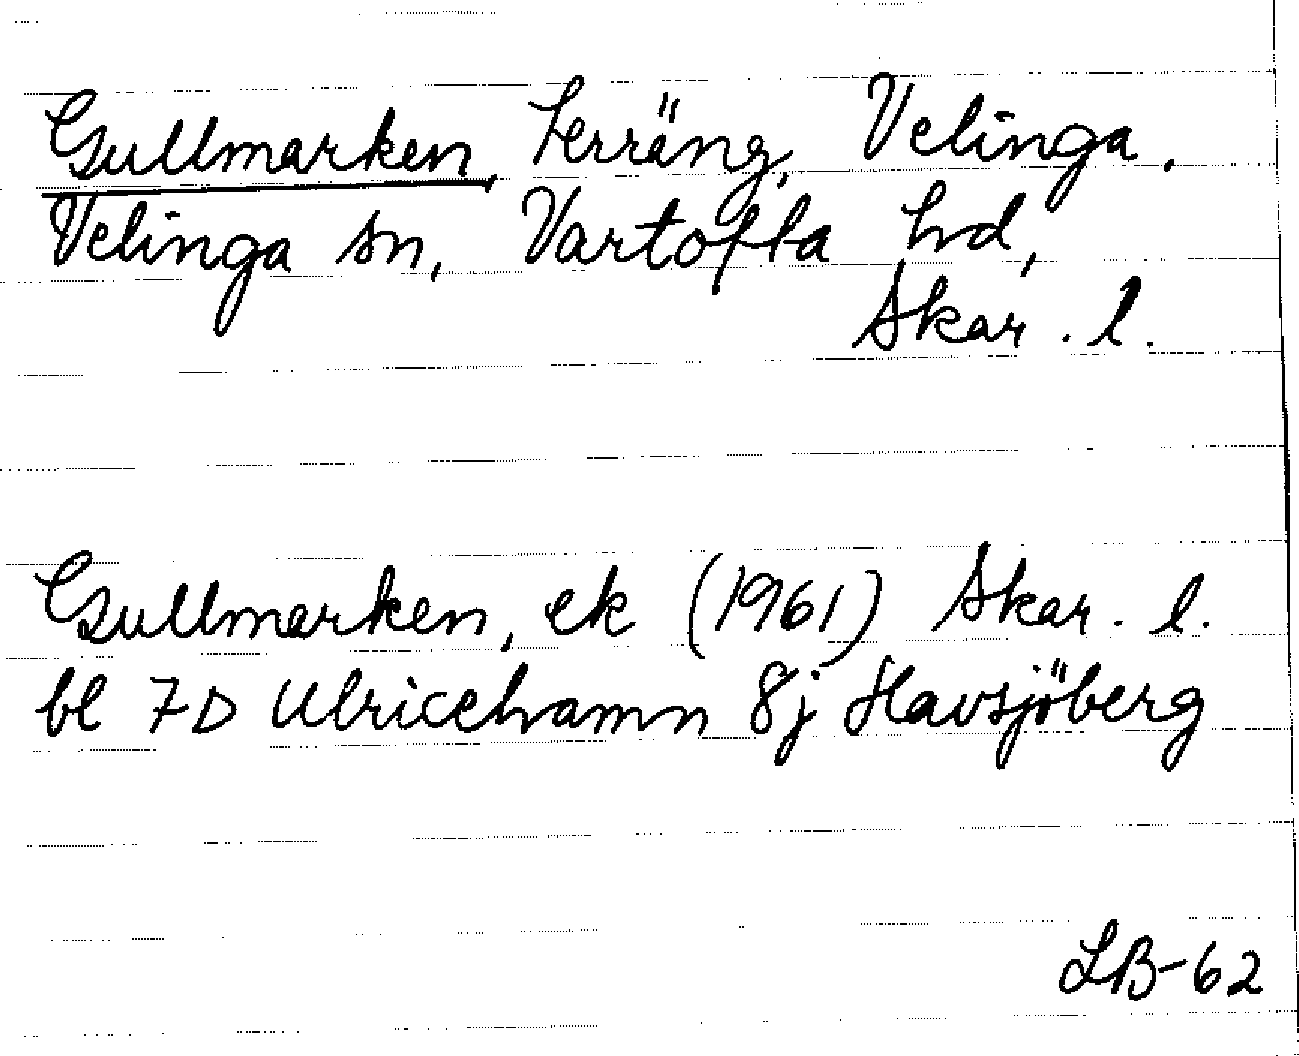 Gullmarken, Terräng, Velinga,
Velinga sn, Vartofta hd,
Skar. l.
Gullmarken, ek (1961) Skar. l.
bl 7D Ulricehamn 8j Havsjöberg
LB-62